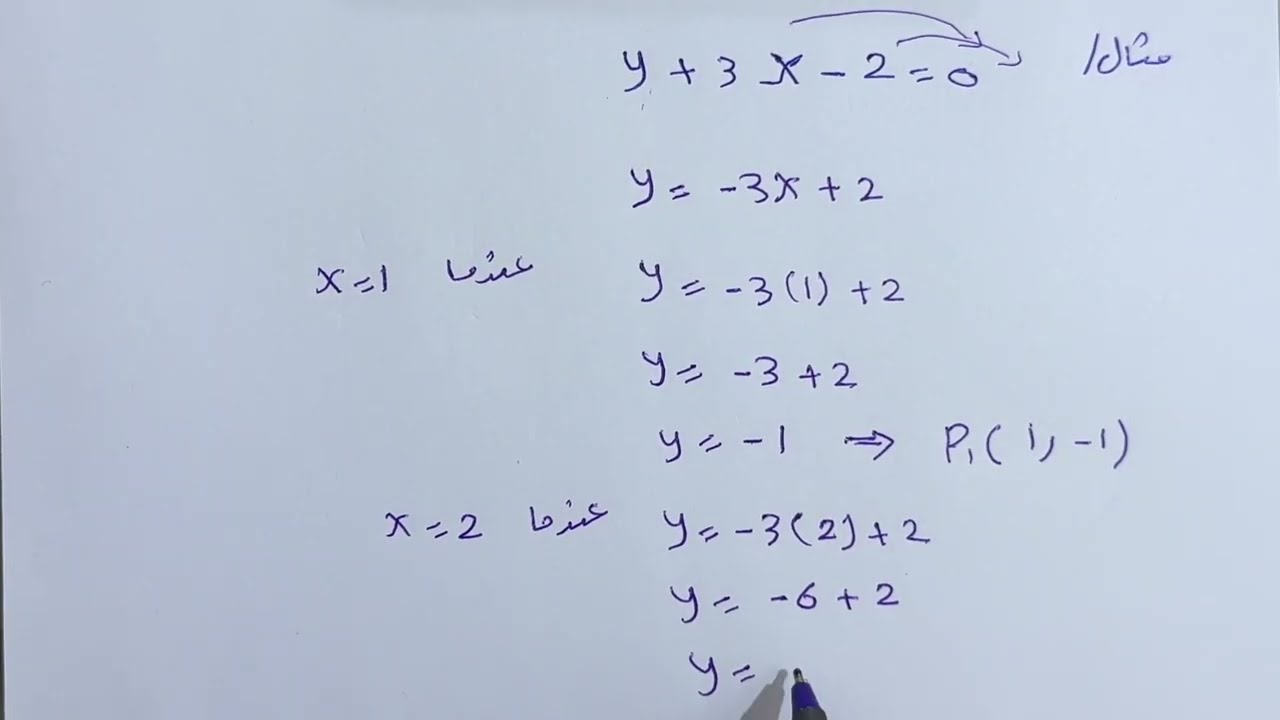 مثال/ y + 3x - 2 = 0
y = -3x + 2
x = 1 عندما y = -3(1) + 2
y = -3 + 2
y = -1 ⇒ P₁(1, -1)
x = 2 عندما y = -3(2) + 2
y = -6 + 2
y =